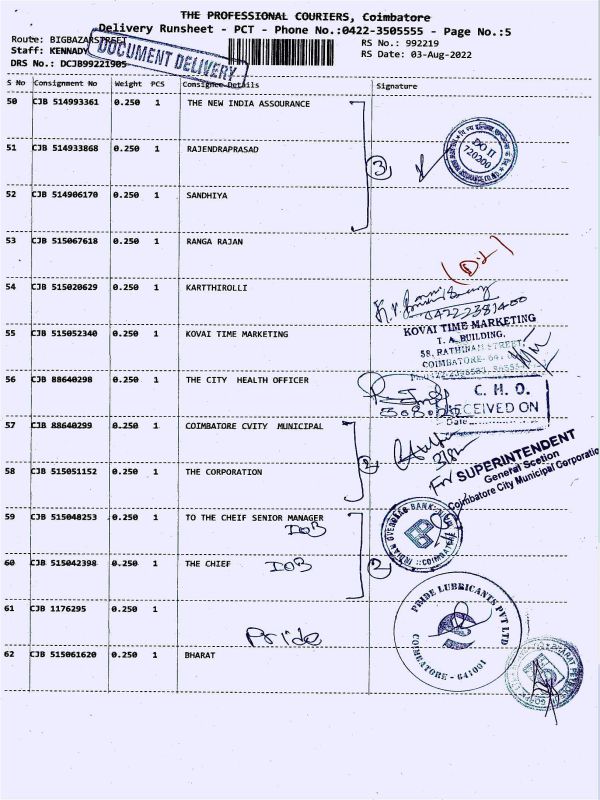 THE PROFESSIONAL COURIERS, Coimbatore
Delivery Runsheet - PCT - Phone No.:0422-3505555 - Page No.:5
Route: BIGBAZARSTREET
RS No.: 992219
Staff: KENNADY
RS Date: 03-Aug-2022
DRS No.: DCJB99221905
DOCUMENT DELIVERY
S No Consignment No Weight PCS Consignee Details Signature
50 CJB 514933361 0.250 1 THE NEW INDIA ASSOURANCE
51 CJB 514933868 0.250 1 RAJENDRAPRASAD
3
DO II
720200
52 CJB 514906170 0.250 1 SANDHIYA
53 CJB 515067618 0.250 1 RANGA RAJAN
(D.L)
54 CJB 515020629 0.250 1 KARTTHIROLLI
04222381400
55 CJB 515052340 0.250 1 KOVAI TIME MARKETING
KOVAI TIME MARKETING
T. A. BUILDING,
58, RATHINAM STREET,
COIMBATORE-641
56 CJB 88640298 0.250 1 THE CITY HEALTH OFFICER
C. H. O.
RECEIVED ON
Date
57 CJB 88640299 0.250 1 COIMBATORE CVITY MUNICIPAL
2
58 CJB 515051152 0.250 1 THE CORPORATION
For SUPERINTENDENT
General Scetion
Coimbatore City Municipal Corporation
59 CJB 515048253 0.250 1 TO THE CHEIF SENIOR MANAGER
IOB
INDIAN OVERSEAS BANK
COIMBATORE
60 CJB 515042398 0.250 1 THE CHIEF IOB
2
61 CJB 1176295 0.250 1
Pride
PRIDE LUBRICANTS PVT LTD
COIMBATORE - 641001
62 CJB 515061620 0.250 1 BHARAT